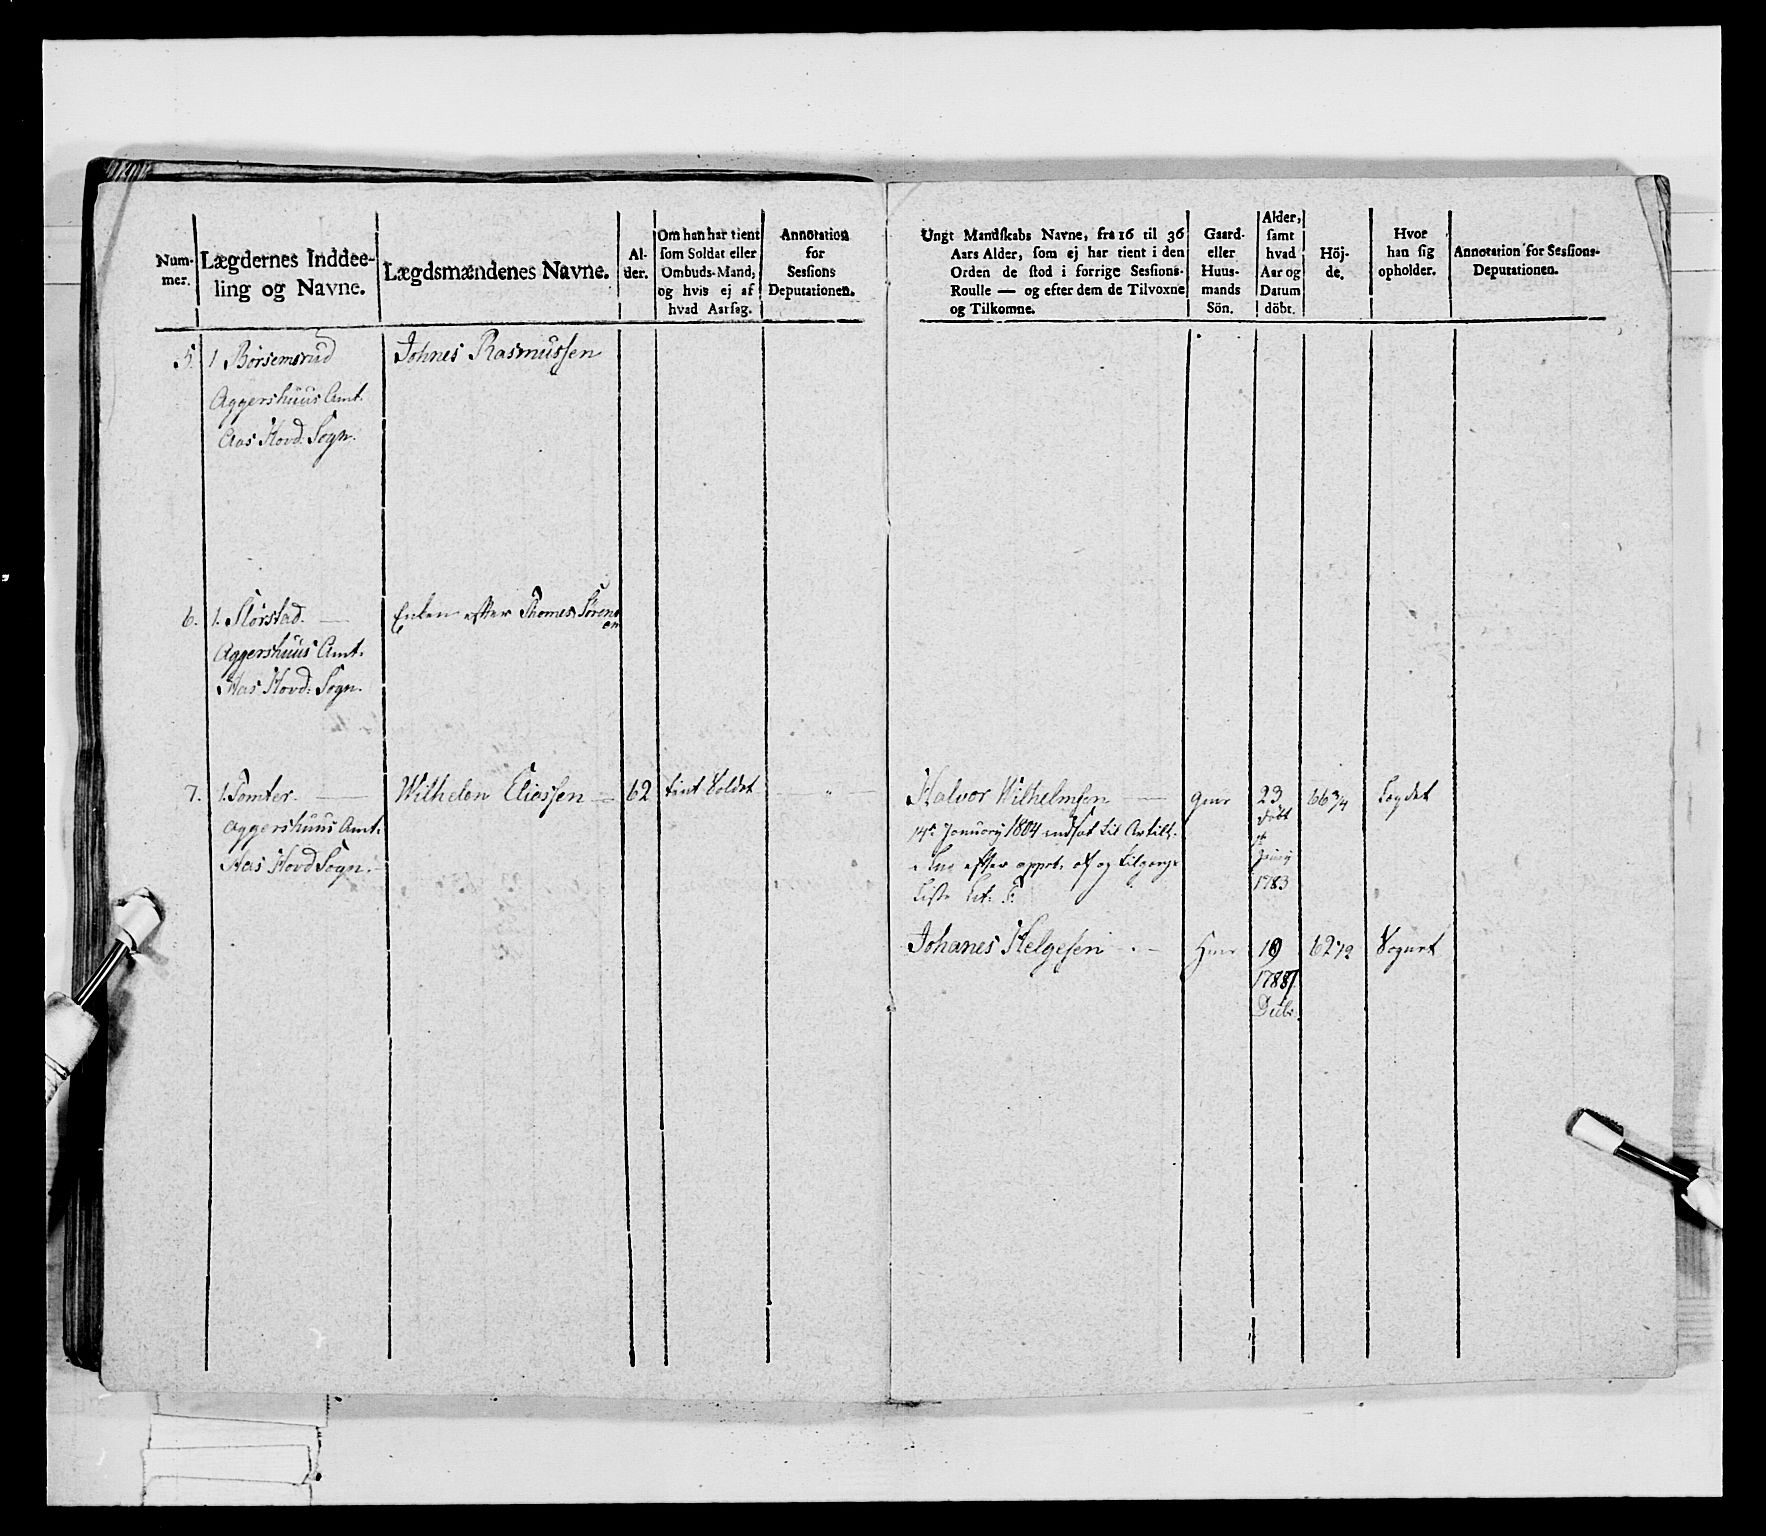 Num-
mer.
Lægdernes Inddee-
ling og Navne.
Lægdsmændenes Navne.
Al-
der.
Om han har tient
som Soldat eller
Ombuds-Mand,
og hvis ej af
hvad Aarsag.
Annotation
for
Sessions
Deputationen.
5. 1 Börsemsrud
Johnes Rasmussen
Aggershuus Amt.
Aas Hovd: Sogn.
6. 1. Störstad.
Enken efter Thomes Sörens
en
Aggershuus Amt.
Aas Hovd: Sogn.
7. 1. Tomter.
Wilhelm Eliassen 62 tient Soldat
Aggershuus Amt.
Aas Hovd Sogn.
Ungt Mandskabs Navne, fra 16 til 36
Aars Alder, som ej har tient i den
Orden de stod i forrige Sessions-
Roulle — og efter dem de Tilvoxne
og Tilkomne.
Gaard-
eller
Huus-
mands
Sön.
Alder,
samt
hvad
Aar og
Datum
döbt.
Höj-
de.
Hvor
han sig
opholder.
Annotation for Sessions-
Deputationen.
Halvor Wilhelmsen 23 66 3/4
döbt
14de January 1804 indsat til Artill.
efter og Tilgangs
1783
Liste Lit:
Johanes Helgesen 19 62 1/2
1788